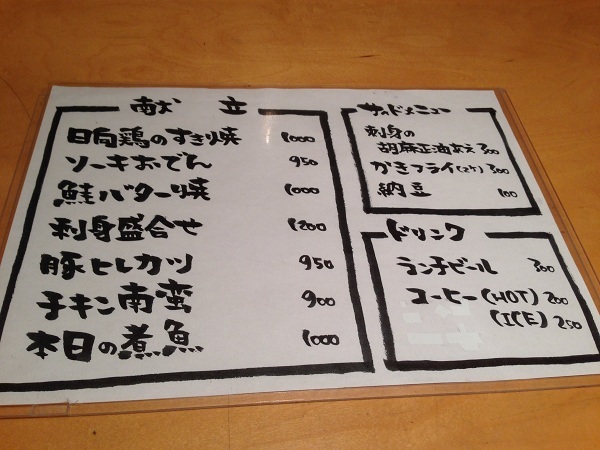 献立
日向鶏のすき焼 1000
ソーキおでん 950
鮭バター焼 1000
刺身盛合せ 1200
豚ヒレカツ 950
チキン南蛮 900
本日の煮魚 1000
サイドメニュー
刺身の
胡麻正油あえ 300
かきフライ(2ヶ) 300
納豆 100
ドリンク
ランチビール 300
コーヒー(HOT) 200
(ICE) 250